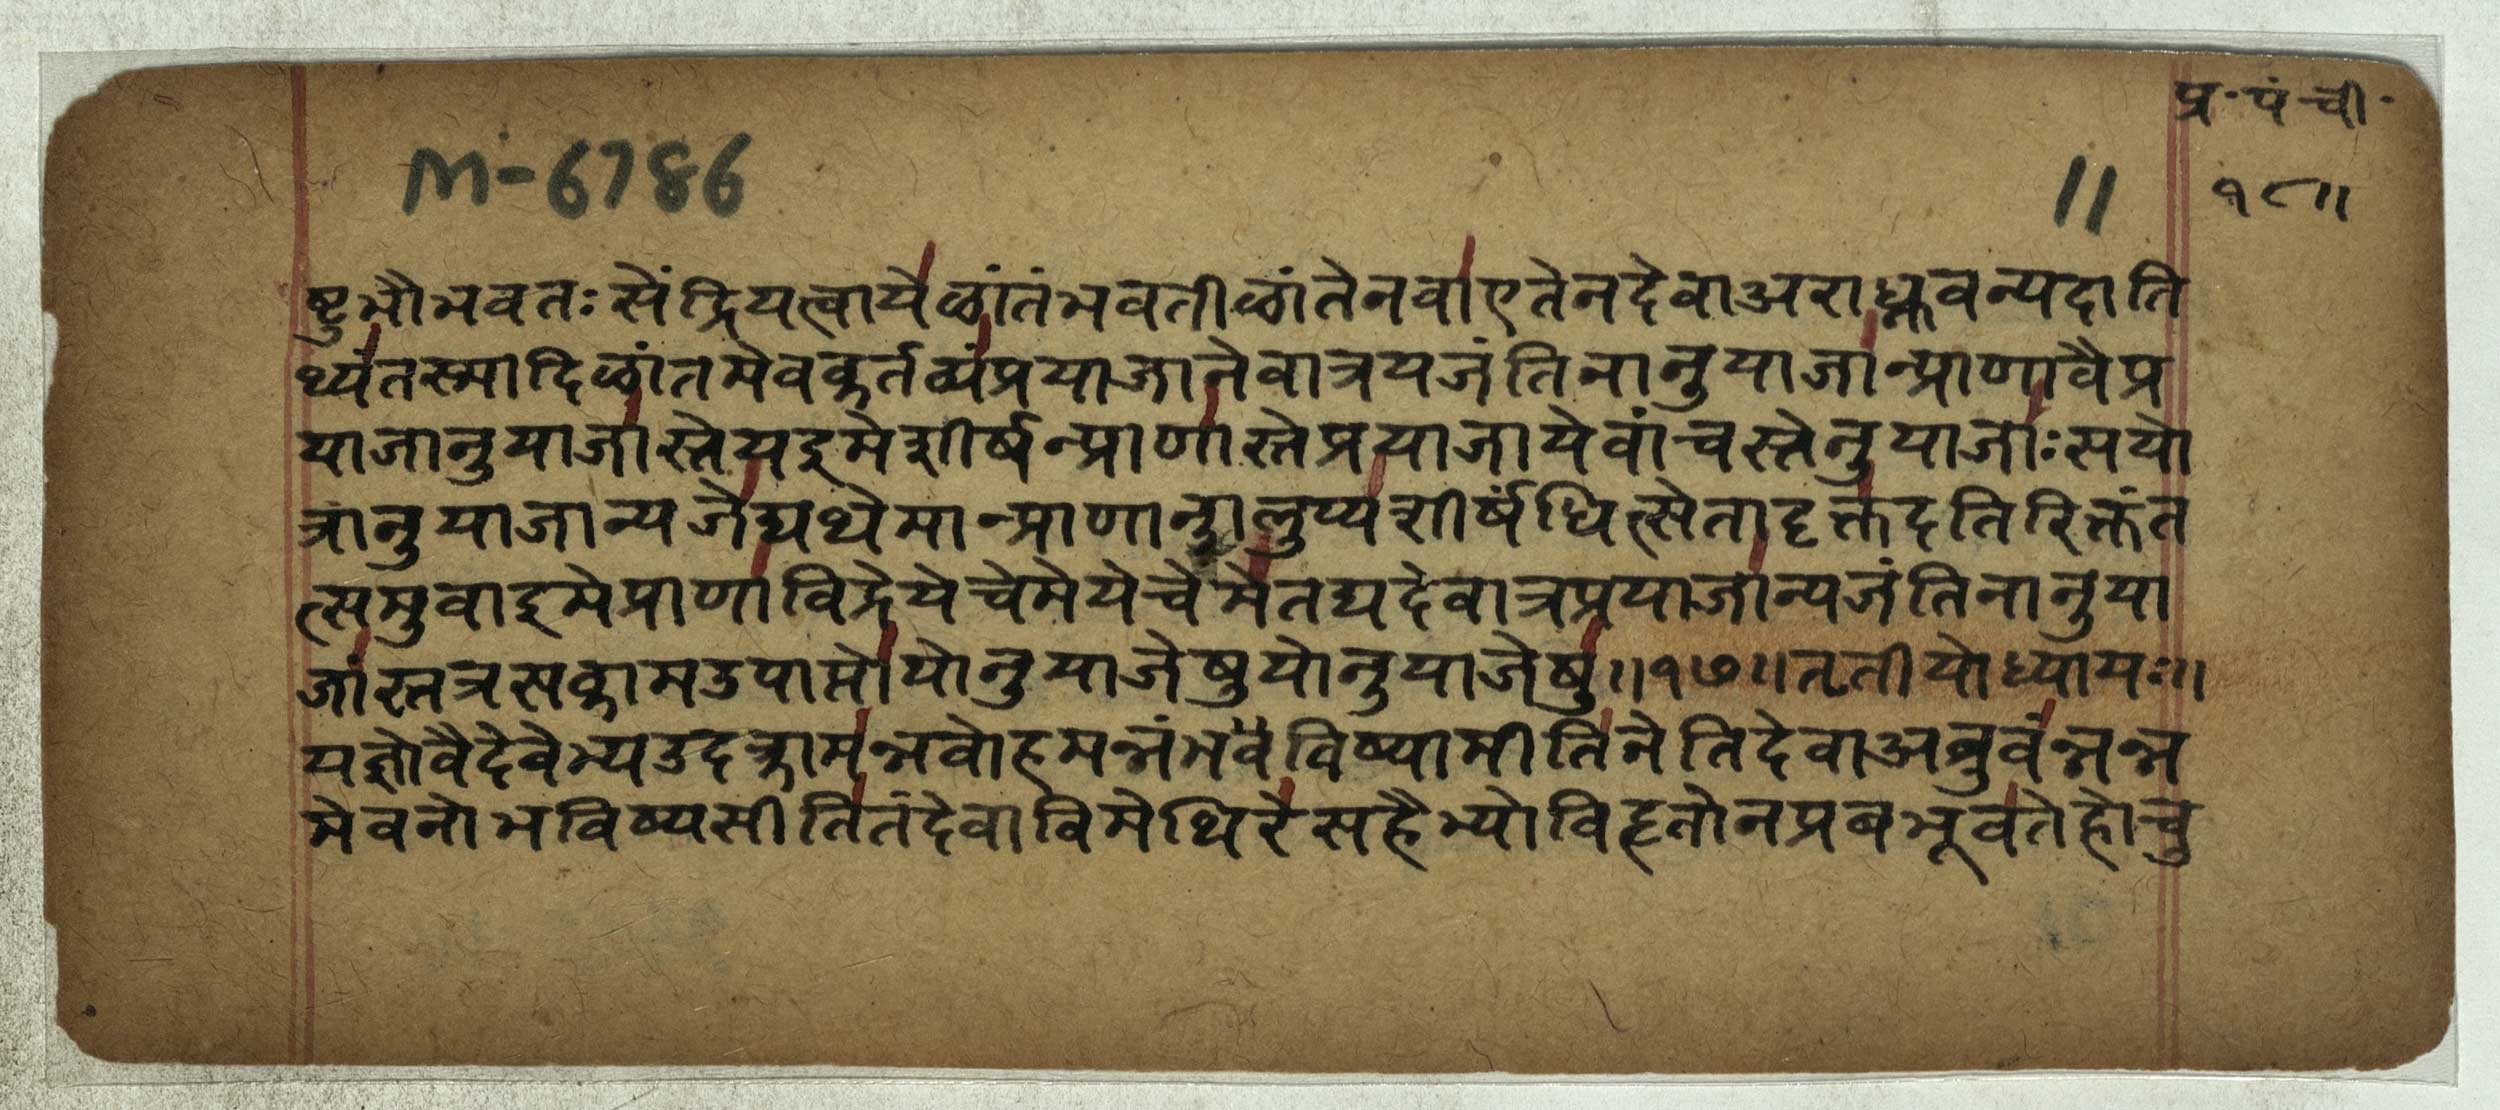 प्र॰पंची॰
M-6786
11
१८॥
ष्टुभौभवतःसेंद्रियत्वायेळांतंभवतीळांतेनवाएतेनदेवाअराध्नुवन्यदाति
थ्यंतस्मादिळांतमेवकर्तव्यंप्रयाजानेवात्रयजंतिनानुयाजान्प्राणावैप्र
याजानुयाजास्तेयइमेशीर्षन्प्राणास्तेप्रयाजायेवांचस्तेनुयाजाःसयो
त्रानुयाजान्यजेद्यथेमान्प्राणानालुप्यशीर्षंधित्सेतादृक्तदतिरिक्तंत
त्समुवाइमेप्राणाविद्रेयेचेमेयेचेमेतद्यदेवात्रप्रयाजान्यजंतिनानुया
जांस्तत्रसकामउपाप्तोयोनुयाजेषुयोनुयाजेषु॥१७॥तृतीयोध्यायः॥
यज्ञोवैदेवेभ्यउदक्रामन्नवोहमन्नंभवविष्यामीतिनेतिदेवाअब्रुवंन्नन्न
मेवनोभविष्यसीतितंदेवाविमेथिरेसहैभ्योविहृतोनप्रबभूवतेहोचु